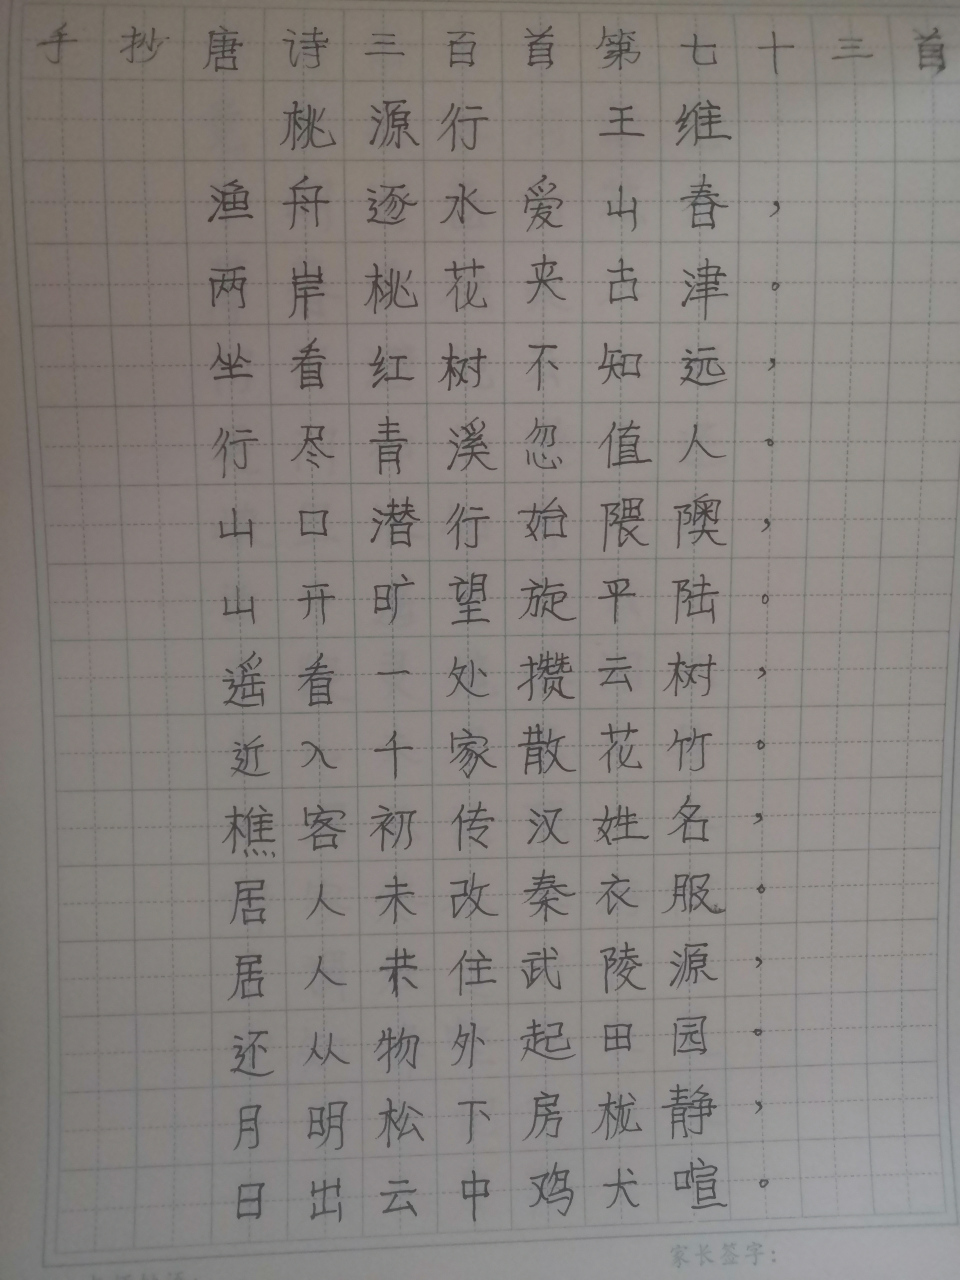 手抄唐诗三百首第七十三首
桃源行 王维
渔舟逐水爱山春，
两岸桃花夹古津。
坐看红树不知远，
行尽青溪忽值人。
山口潜行始隈隩，
山开旷望旋平陆。
遥看一处攒云树，
近入千家散花竹。
樵客初传汉姓名，
居人未改秦衣服。
居人共住武陵源，
还从物外起田园。
月明松下房栊静，
日出云中鸡犬喧。
家长签字：